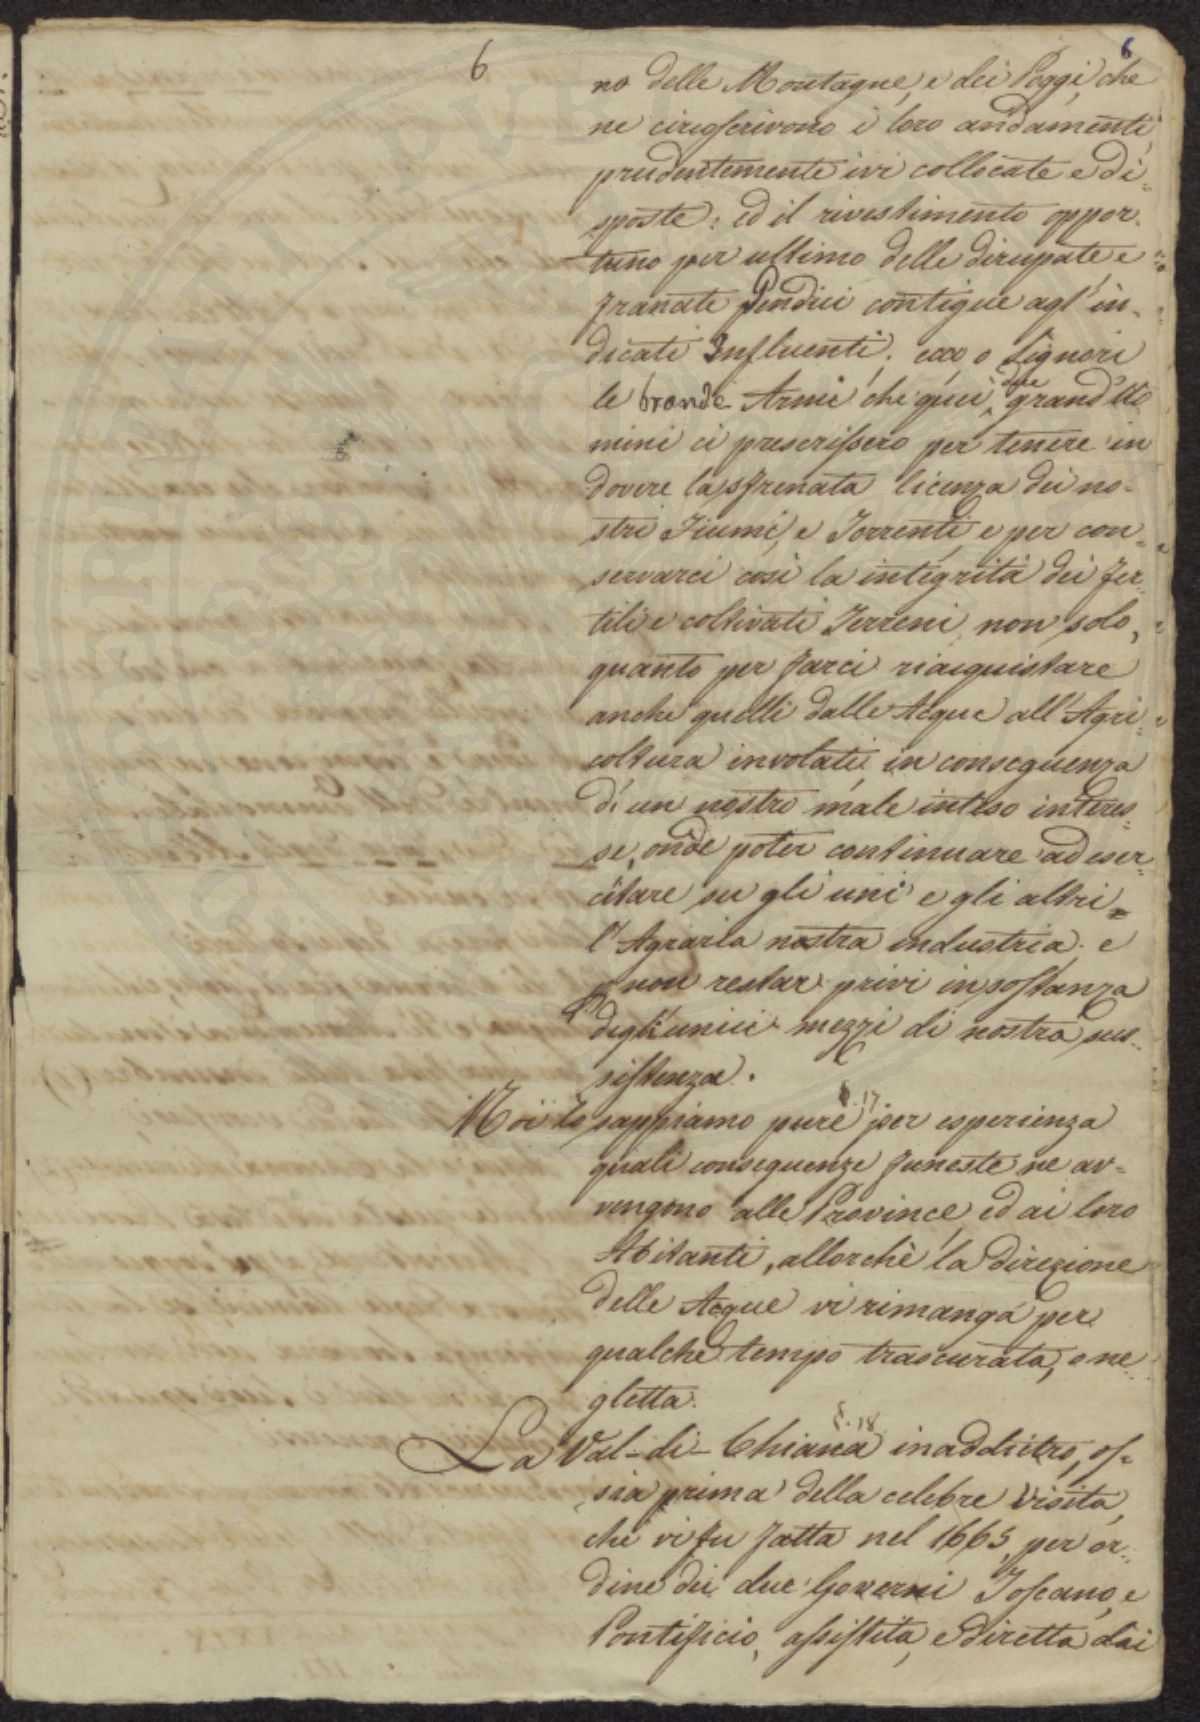 6
6
no delle Montagne, e dei Poggi, che
ne circoscrivono i loro andamenti,
prudentemente ivi collocate e di=
sposte; ed il rivestimento oppor=
tuno per ultimo delle dirupate e
franate Pendici contigue agl'in=
dicati Influenti; ecco o Signori
le Armi che quei due grand'Uo
mini ci prescrissero per tenere in
dovere la sfrenata licenza dei no=
stri Fiumi, e Torrenti, e per con=
servarci così la integrità dei fer=
tili e coltivati Terreni non solo,
quanto per farci riacquistare
anche quelli dalle Acque all'Agri=
coltura involati, in conseguenza
di un nostro male inteso interes=
se, onde poter continuare ad eser=
citare su gli uni e gli altri=
l'Agraria nostra industria; e
non restar privi in sostanza
degli unici mezzi di nostra sus=
sistenza.
§. 17
Noi lo sappiamo pure per esperienza
quali conseguenze funeste ne av=
vengono alle Province, ed ai loro
Abitanti, allorchè la direzione
delle Acque vi rimanga per
qualche tempo trascurata, o ne
gletta.
§. 18
La Val-di-Chiana inaddietro, os=
sia prima della celebre Visita,
che vi fu fatta nel 1665, per or=
dine dei due Governi Toscano, e
Pontificio, assistita, e diretta dai